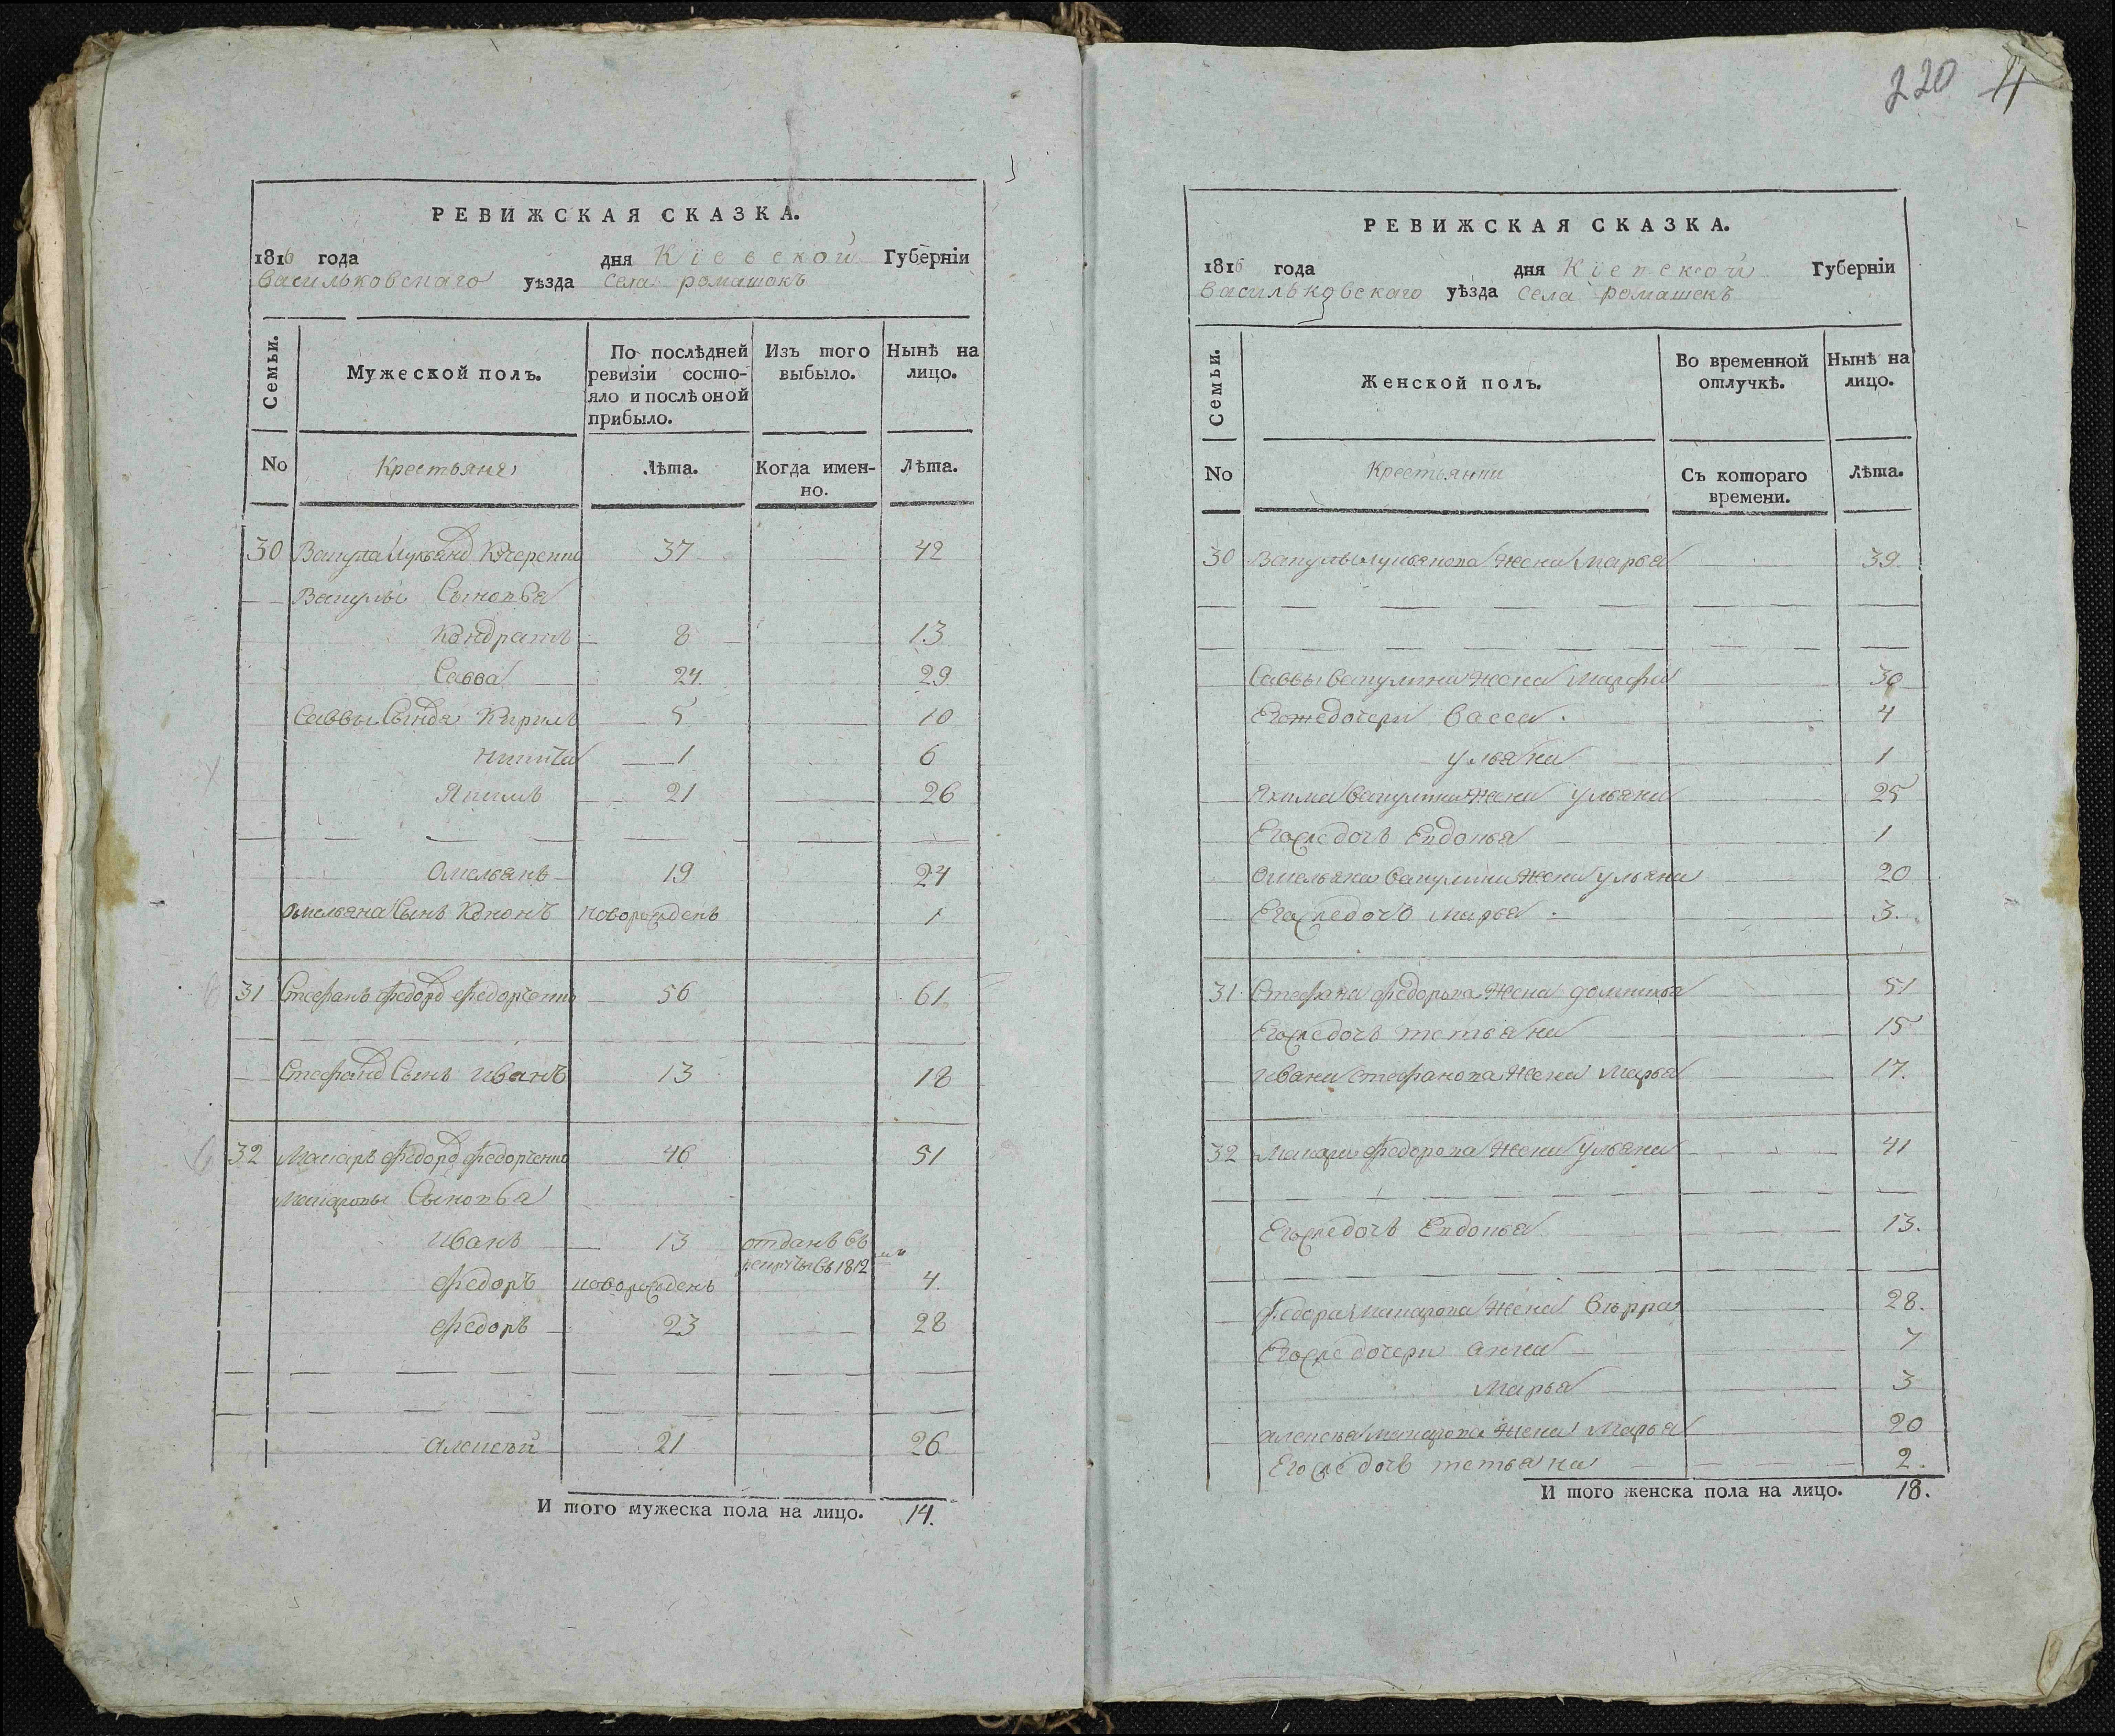 220 4
РЕВИЖСКАЯ СКАЗКА.
1816 года дня Кіевской Губерніи
Васильковскаго уѣзда села ромашокъ
Семьи. Мужеской полъ. По послѣдней ревизіи состояло и послѣ оной прибыло. Изъ того выбыло. Нынѣ на лицо.
No Крестьяне Лѣта. Когда именно. Лѣта.
30 Вакула Лукьяно Кочеренко 37 42
Вакулы Сыновья
Кондратъ 8 13
Савва 24 29
Саввы Сыновя Кирилъ 5 10
Никита 1 6
Якимъ 21 26
Омельянъ 19 24
Омельяна Сынъ Кононъ новорожденъ 1
31 Стефанъ Федоро Федорченко 56 61
Стефано Сынъ Иванъ 13 18
32 Макаръ Федоро Федорченко 46 51
Макаровы Сыновья
Иванъ 13 отданъ въ
рекруты въ 1812
Федоръ новорожденъ 4
Федоръ 23 28
Алексѣй 21 26
И того мужеска пола на лицо. 14.
РЕВИЖСКАЯ СКАЗКА.
1816 года дня Кіевской Губерніи
Васильковскаго уѣзда села ромашекъ
Семьи. Женской полъ. Во временной отлучкѣ. Нынѣ на лицо.
No Крестьянки Съ котораго времени. Лѣта.
30 Вакулы Лукьянова Жена Марья 39.
Саввы Вакулина Жена Марфа 30
Егоже дочери Васса 4
Ульяна 1
Якима Вакулина Жена Ульяна 25
Егоже дочь Евдокья 1
Омельяна Вакулина Жена Ульяна 20
Егоже дочь Марья 3.
31. Стефана Федорова Жена 51
Егоже дочь Тетьяна 15
Ивана Стефанова Жена Марья 17.
32 Макара Федорова Жена Ульяна 41
Егоже дочь Евдокья 13.
Федора Макарова Жена 28.
Егоже дочери Анна 7
Марья 3
Алексѣя Макарова Жена Марья 20
Егоже дочь Тетьяна 2.
И того женска пола на лицо. 18.